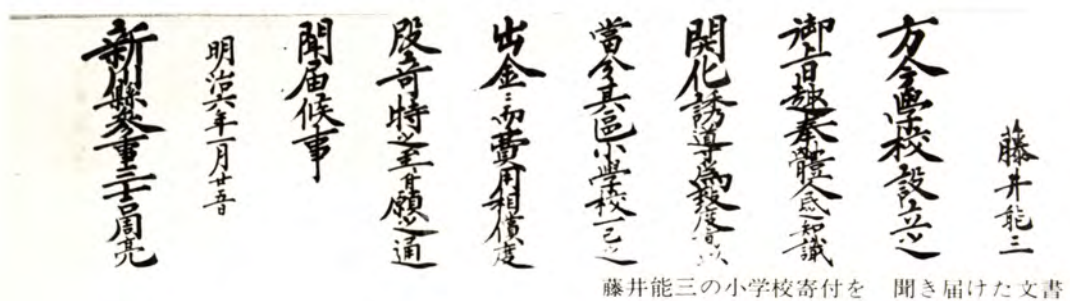 藤井能三
方今学校設立之
御旨趣奉體人民之知識
開化誘導為致度旨以
當今其區小學校一己之
出金ニ而費用相償度
段奇特之至ニ付願之通
聞届候事
明治六年一月廿五日
新川縣参事三吉周亮
藤井能三の小学校寄付を 聞き届けた文書